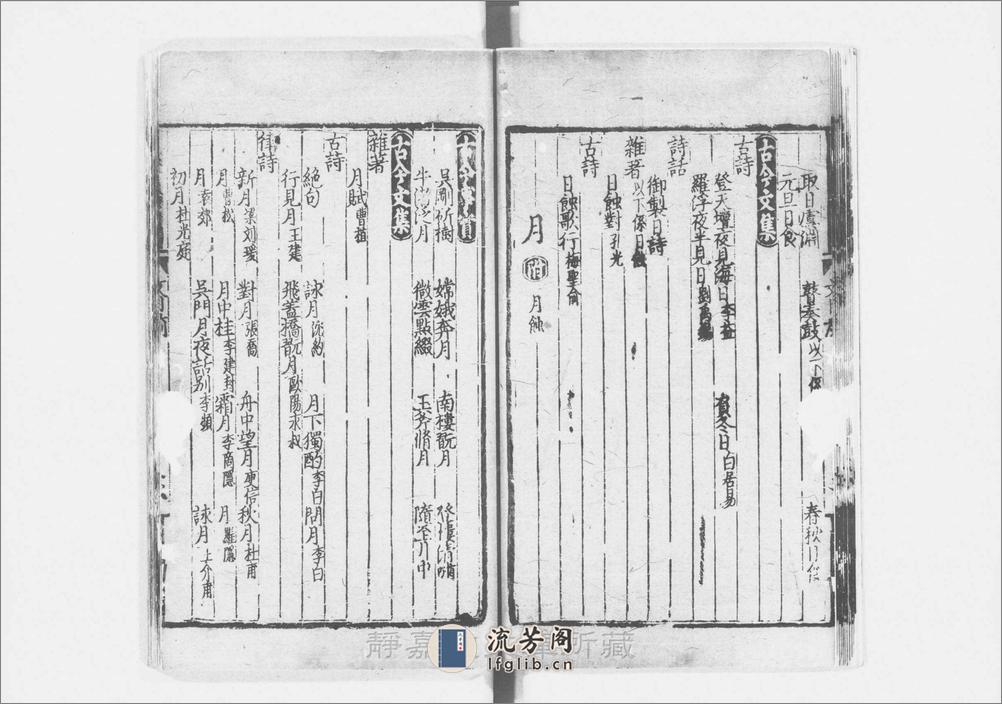 取日虞淵 鼓奏鼓以下係 春秋日食
元旦日食
古今文集
古詩
登天壇夜見海日李益 負冬日白居易
羅浮夜半見日劉禹錫
詩話
御製日詩
雜著以下係日蝕
日蝕對孔光
古詩
日蝕歌行梅聖俞
月 附 月蝕
古今事實
吳剛斫樹 嫦娥奔月 南樓翫月
牛渚泛月 微雲點綴 玉斧脩月
古今文集
雜著
月賦曹植
古詩
絶句 詠月沈約 月下獨酌李白 問月李白
行見月王建 飛蓋橋翫月歐陽永叔
律詩
新月梁刘瑗 對月張喬 舟中望月庾信 秋月杜甫
月曹松 月中桂李建封 霜月李商隱 月羅隱
月李郊 吳門月夜話別李頻 詠月上介甫
初月杜光庭
流芳阁
lfglib.cn